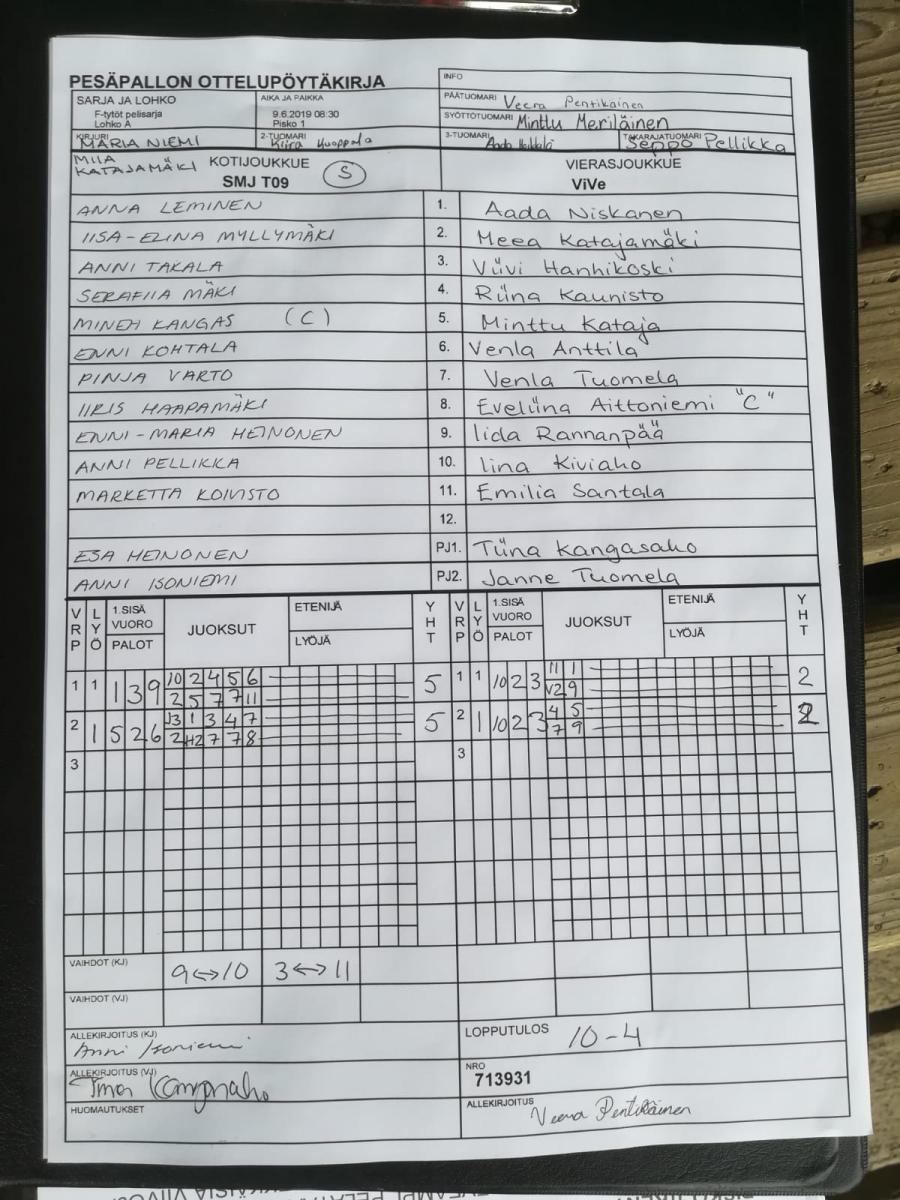 PESÄPALLON OTTELUPÖYTÄKIRJA
INFO
SARJA JA LOHKO
F-tytöt pelisarja
Lohko A
AIKA JA PAIKKA
9.6.2019 08:30
Pisko 1
PÄÄTUOMARI Veera Pentikäinen
SYÖTTÖTUOMARI Minttu Meriläinen
KIRJURI MARIA NIEMI
MIIA KATAJAMÄKI
2-TUOMARI Kiira Huoppala
3-TUOMARI Aada Heikkilä
TAKARAJATUOMARI Seppo Pellikka
KOTIJOUKKUE
SMJ T09 S
VIERASJOUKKUE
ViVe
ANNA LEMINEN 1. Aada Niskanen
IISA-ELINA MYLLYMÄKI 2. Meea Katajamäki
ANNI TAKALA 3. Viivi Hanhikoski
SERAFIIA MÄKI 4. Riina Kaunisto
MINEH KANGAS (C) 5. Minttu Kataja
ENNI KOHTALA 6. Venla Anttila
PINJA VARTO 7. Venla Tuomela
IIRIS HAAPAMÄKI 8. Eveliina Aittoniemi "C"
ENNI-MARIA HEINONEN 9. Iida Rannanpää
ANNI PELLIKKA 10. Iina Kiviaho
MARKETTA KOIVISTO 11. Emilia Santala
12.
ESA HEINONEN PJ1. Tiina Kangasaho
ANNI ISONIEMI PJ2. Janne Tuomela
VRP LYÖ 1.SISÄ VUORO PALOT JUOKSUT ETENIJÄ LYÖJÄ YHT VRP LYÖ 1.SISÄ VUORO PALOT JUOKSUT ETENIJÄ LYÖJÄ YHT
1 1 1 3 9 10 2 4 5 6 5 1 1 10 2 3 11 1 2
2 5 7 7 11 V2 9
2 1 5 2 6 J3 1 3 4 7 5 2 1 10 2 3 4 5 2
2 H2 7 7 8 7 9
3 3
VAIHDOT (KJ) 9↔10 3↔11
VAIHDOT (VJ)
ALLEKIRJOITUS (KJ)
Anni Isoniemi
LOPPUTULOS 10-4
ALLEKIRJOITUS (VJ)
Tiina Kangasaho
NRO
713931
HUOMAUTUKSET
ALLEKIRJOITUS
Veera Pentikäinen